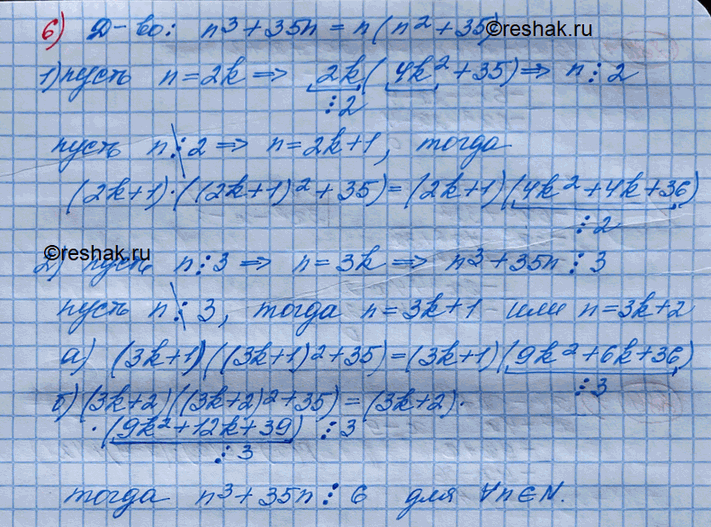 б) Д-во: n³ + 35n = n(n² + 35)
©reshak.ru
1) пусть n = 2k ⇒ 2k(4k² + 35) ⇒ n ⋮ 2
⋮ 2
пусть n ⋮̸ 2 ⇒ n = 2k+1, тогда
(2k+1)·((2k+1)² + 35) = (2k+1)(4k² + 4k + 36)
⋮ 2
©reshak.ru
2) пусть n ⋮ 3 ⇒ n = 3k ⇒ n³ + 35n ⋮ 3
пусть n ⋮̸ 3, тогда n = 3k+1 или n = 3k+2
а) (3k+1)((3k+1)² + 35) = (3k+1)(9k² + 6k + 36)
⋮ 3
б) (3k+2)((3k+2)² + 35) = (3k+2)·
·(9k² + 12k + 39) ⋮ 3
⋮ 3
тогда n³ + 35n ⋮ 6 для ∀n∈N.